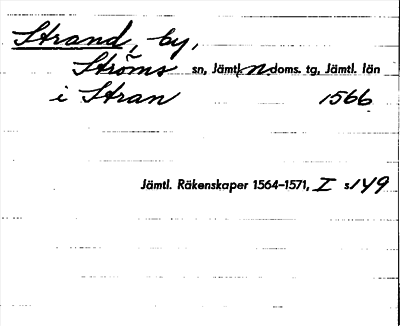 Strand, by,
Ströms sn, Jämtl. n. doms. tg, Jämtl. län
i Stran 1566
Jämtl. Räkenskaper 1564-1571, I s149